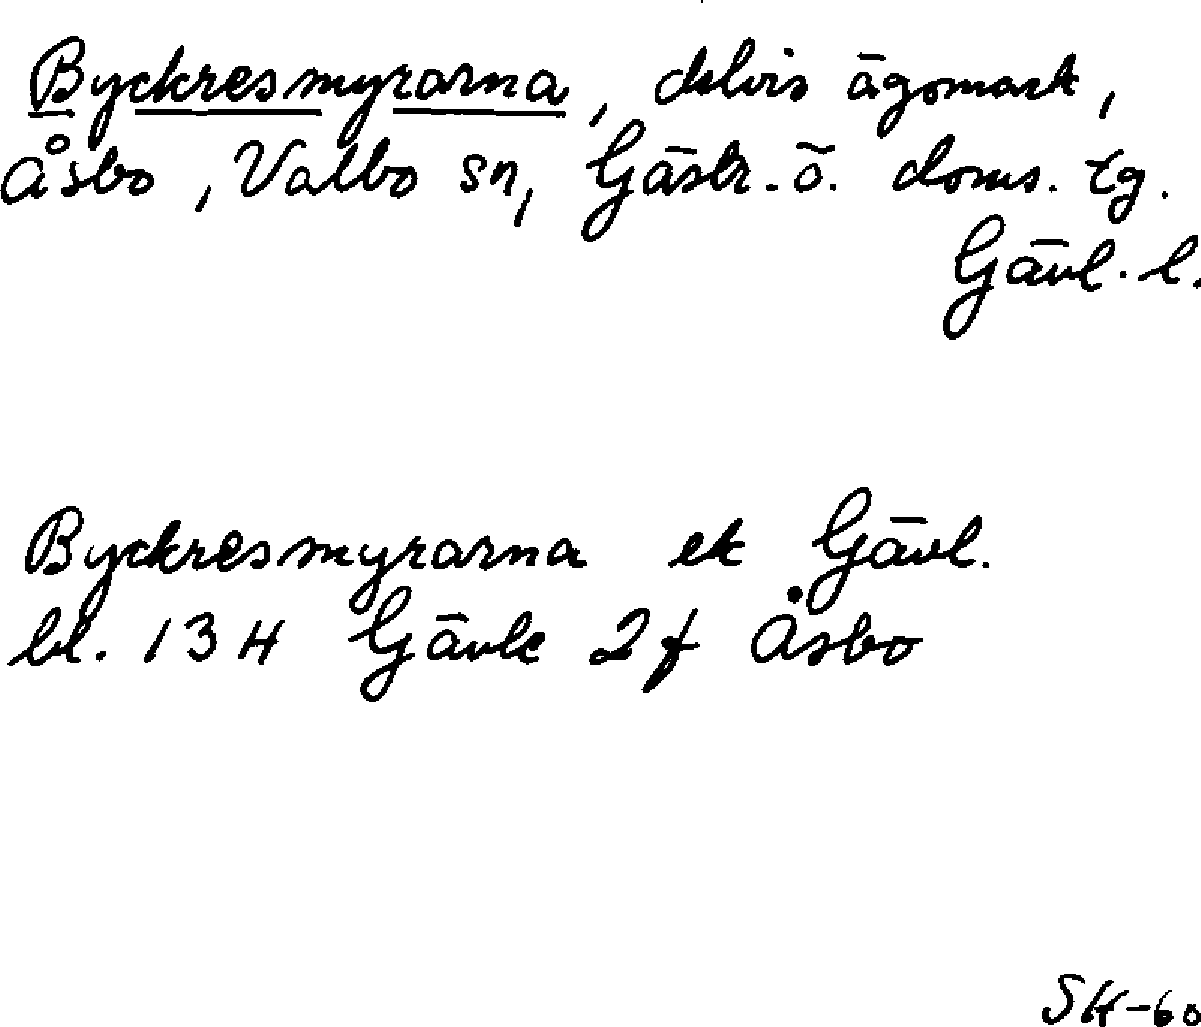 Byckresmyrarna, delvis ägomark,
Åsbo, Valbo sn, Gästr. ö. doms. tg.
Gävl. l.
Byckresmyrarna ek Gävl.
bl. 13 H Gävle 2f Åsbo
SH-60